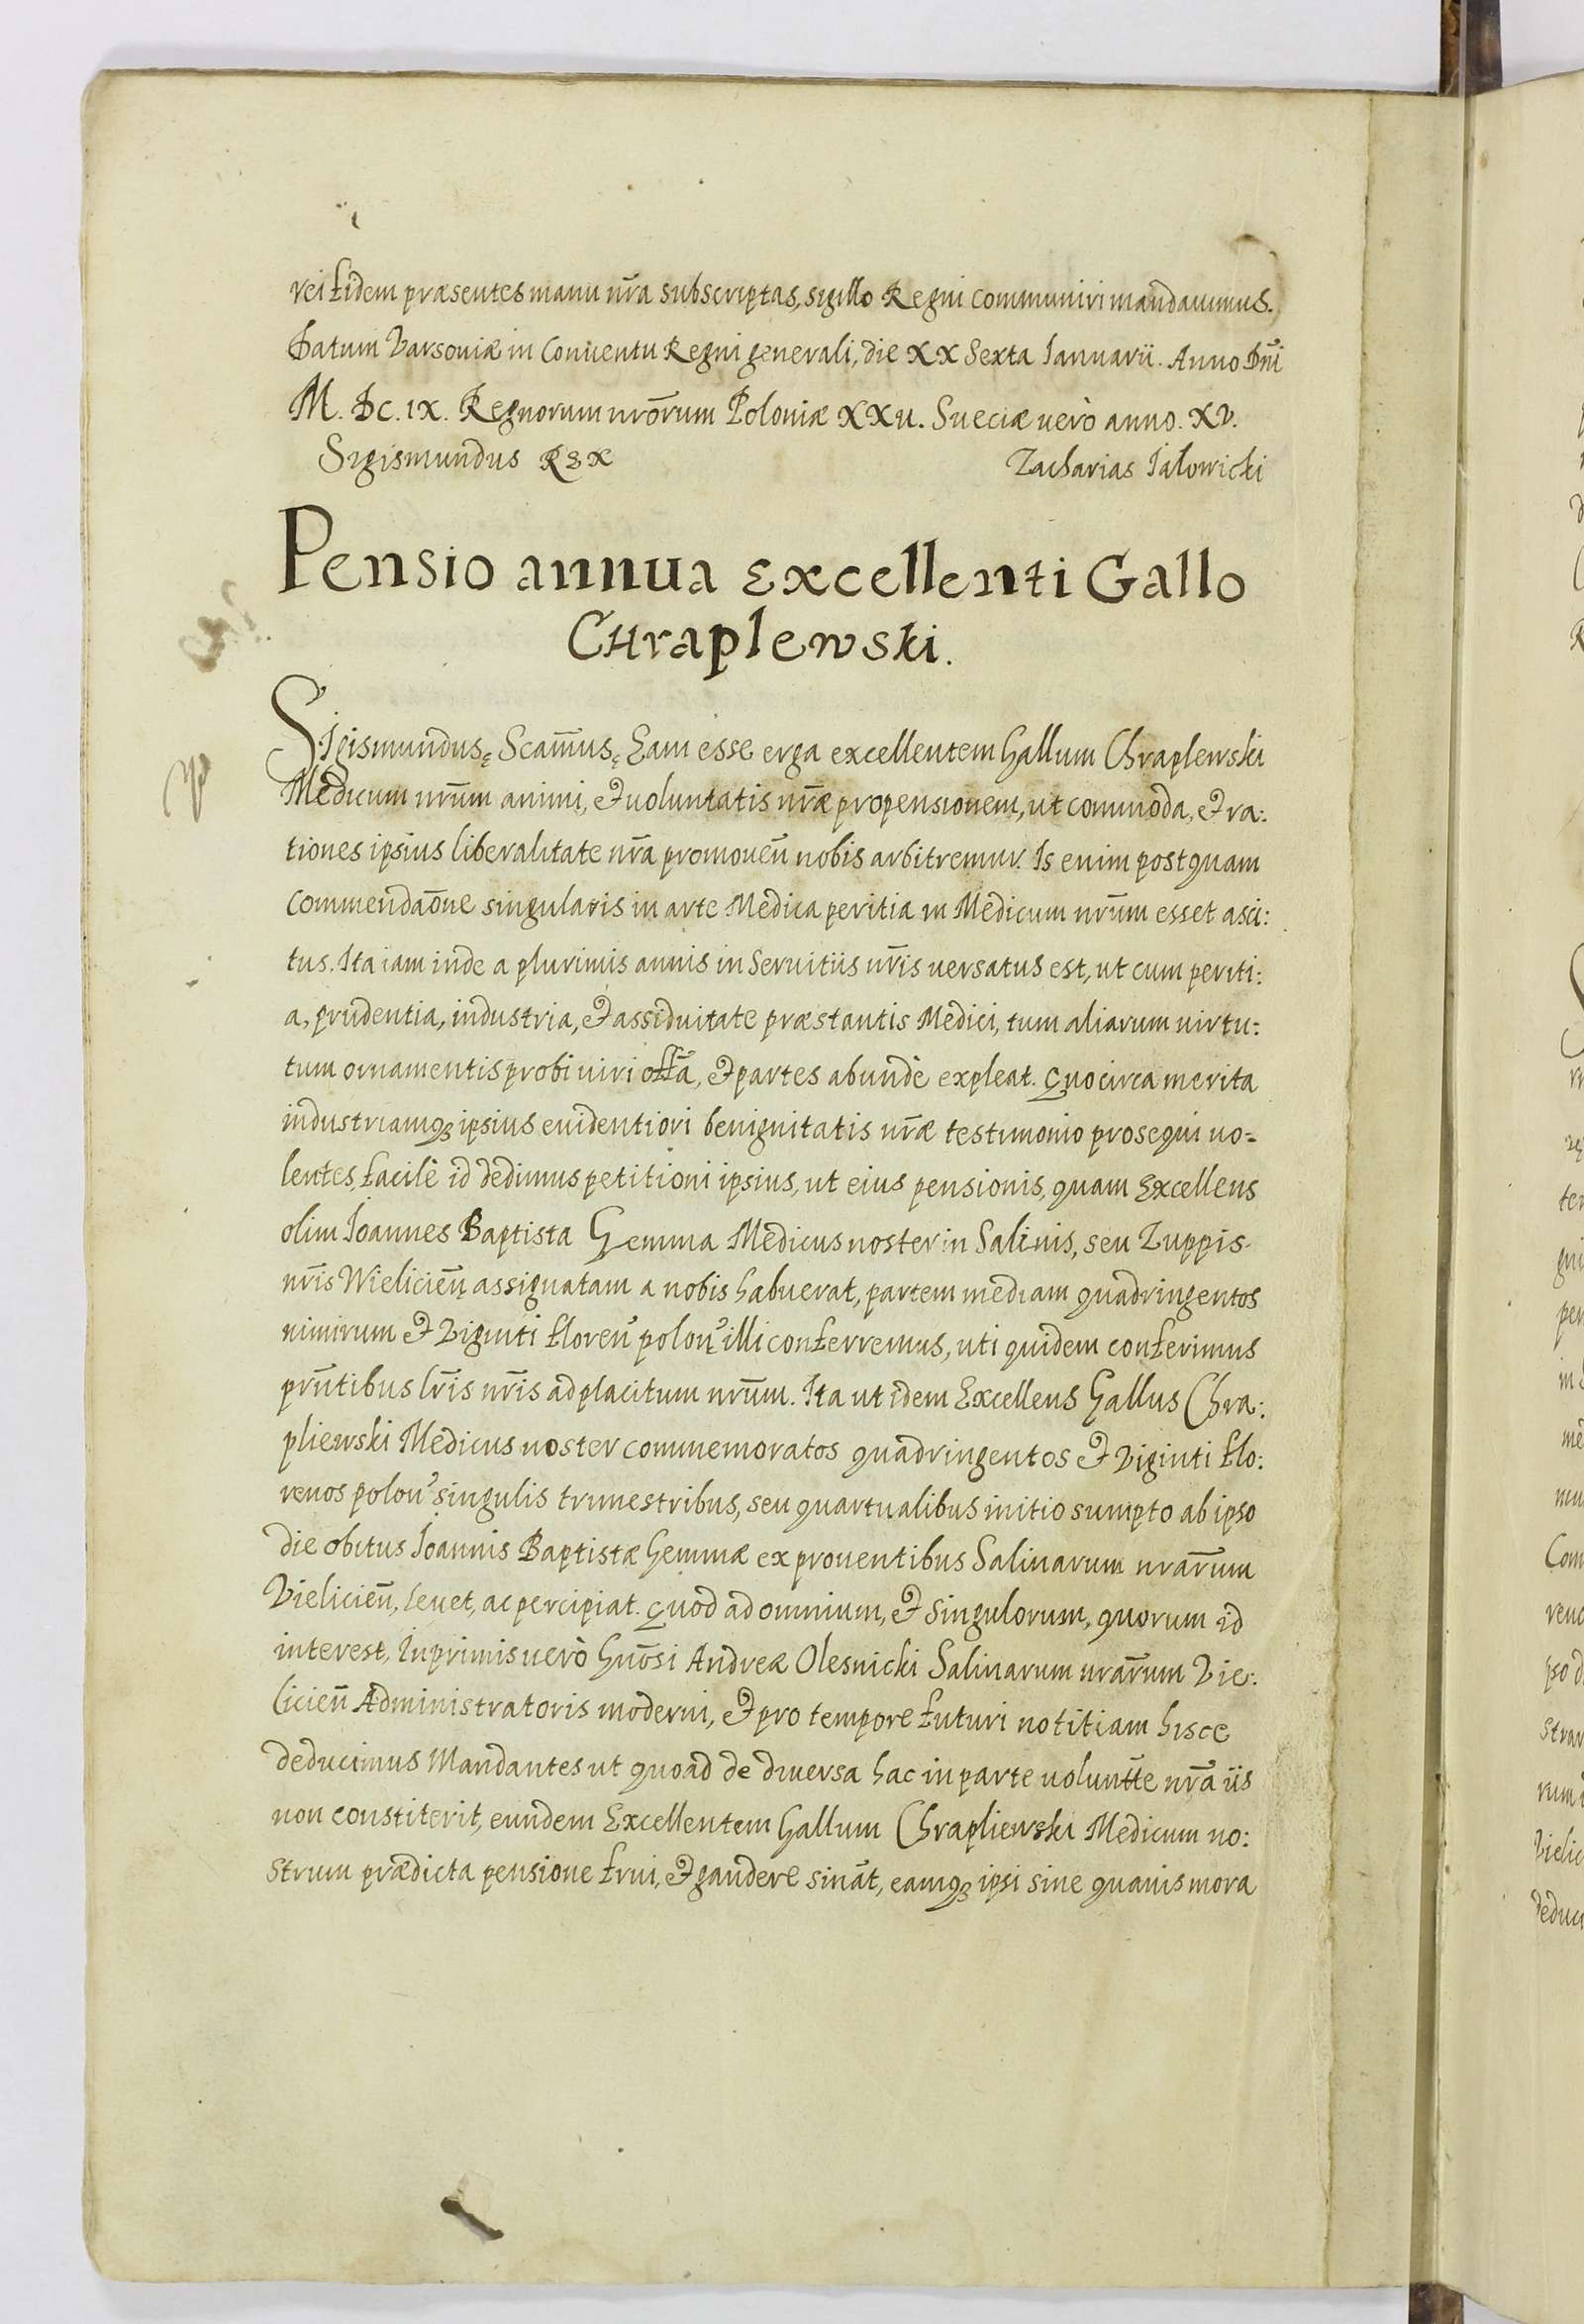 rei fidem præsentes manu nr̃a subscriptas, sigillo Regni communiri mandauimus.
Datum Varsouiæ in Conuentu Regni generali, die XX Sexta Ianuarii. Anno Dñi
M. Dc. ix. Regnorum nrõrum Poloniæ XXII. Sueciæ uerò anno. XV.
Sigismundus Rex Zacharias Iałowicki
Pensio annua excellenti Gallo
CHraplewski.
Sigismundus, Scam̃us, Eam esse erga excellentem Gallum Chraplewski
Medicum nrũm animi, et uoluntatis nr̃æ propensionem, ut commoda, et ra:
tiones ipsius liberalitate nr̃a promoueñ nobis arbitremur. Is enim postquam
commendaõne singularis in arte Medica peritia in Medicum nrũm esset asci:
tus. Ita iam inde a plurimis annis in Seruitiis nr̃is uersatus est, ut cum periti:
a, prudentia, industria, et assiduitate præstantis Medici, tum aliarum uirtu:
tum ornamentis probi uiri offã, et partes abundè expleat. Quocirca merita
industriamq3 ipsius euidentiori benignitatis nr̃æ testimonio prosequi uo=
lentes, facilè id dedimus petitioni ipsius, ut eius pensionis, quam Excellens
olim Ioannes Baptista Gemma Medicus noster in Salinis, seu Zuppis
nr̃is Wielicień assignatam a nobis habuerat, partem mediam quadringentos
nimirum et Viginti floreñ poloñ illi conferremus, uti quidem conferimus
prñtibus lr̃is nr̃is ad placitum nrũm. Ita ut idem Excellens Gallus Chra:
pliewski Medicus noster commemoratos quadringentos et Viginti flo:
renos poloñ singulis trimestribus, seu quartualibus initio sumpto ab ipso
die obitus Ioannis Baptistæ Gemmæ ex prouentibus Salinarum nrarũm
Vielicieñ, leuet, ac percipiat. Quod ad omnium, et Singulorum, quorum id
interest, Inprimis uerò Gnõsi Andreæ Olesnicki Salinarum nrarũm Vie:
licieñ Administratoris moderni, et pro tempore futuri notitiam hisce
deducimus Mandantes ut quoad de diuersa hac in parte uolunt̃te nr̃a iis
non constiterit, eundem Excellentem Gallum Chrapliewski Medicum no:
strum prædicta pensione frui, et gaudere sinãt, eamq3 ipsi sine quauis mora